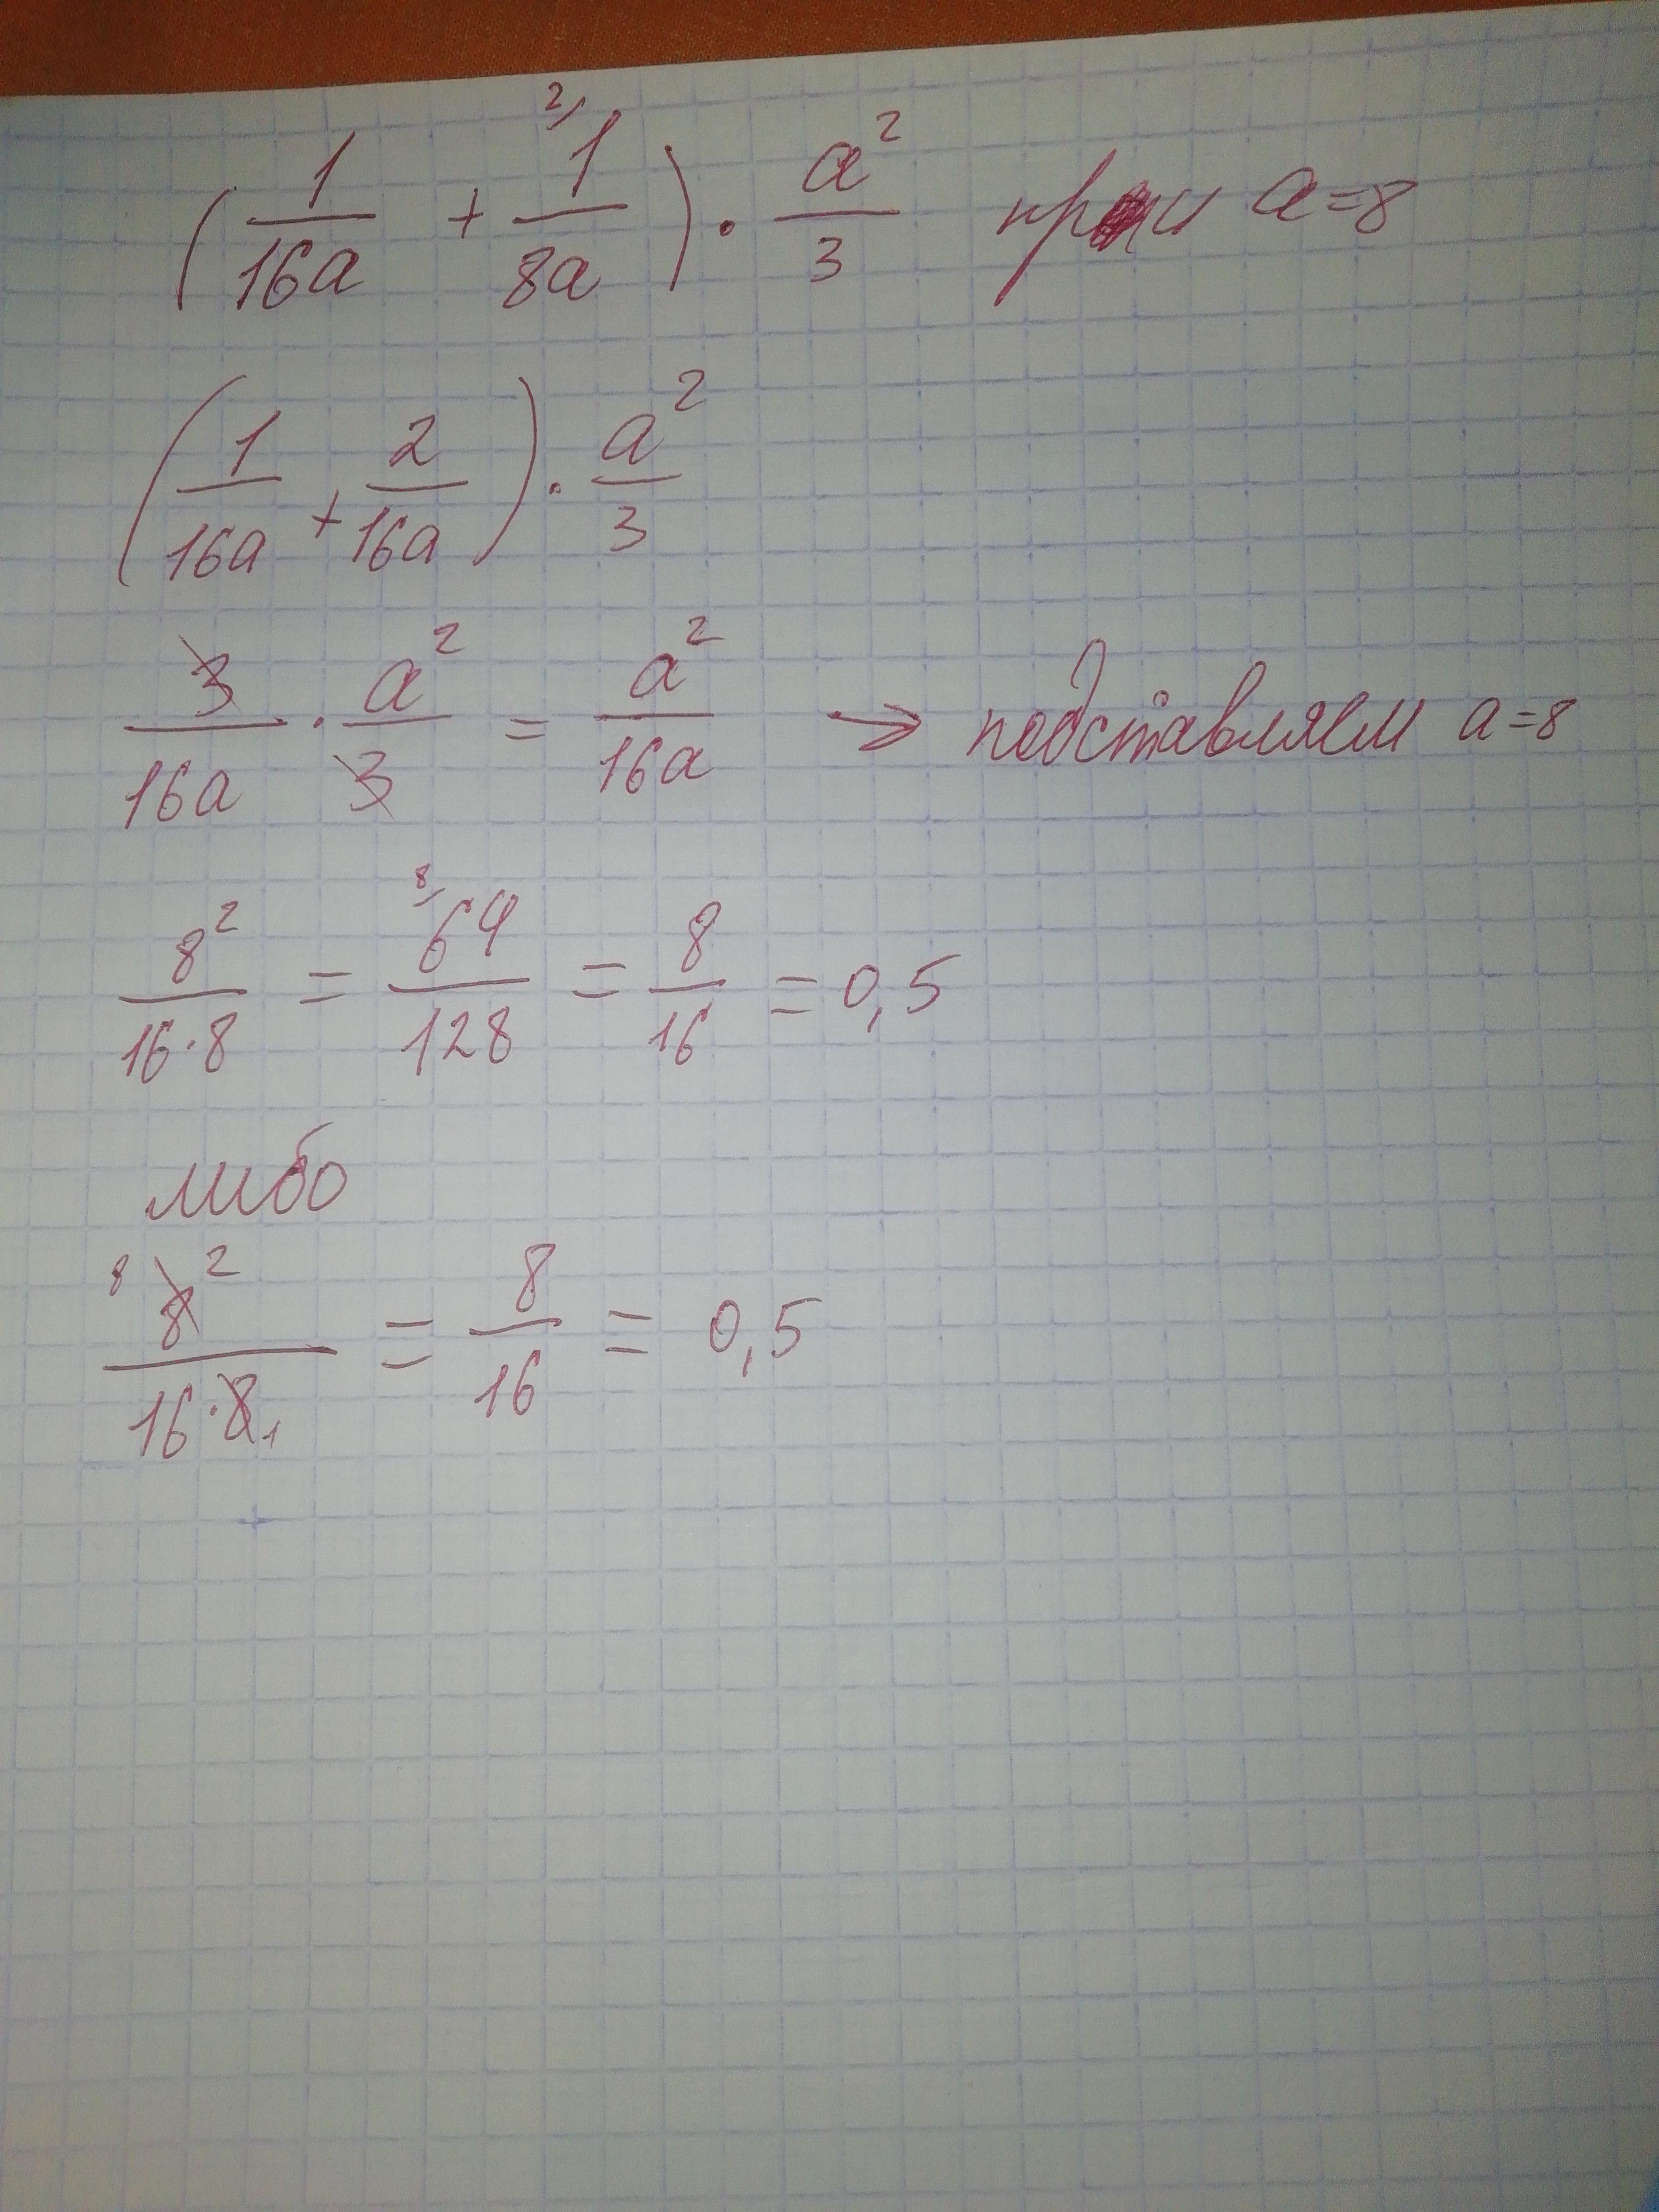 (1/16a + 2/ 1/8a) · a²/3 при a=8
(1/16a + 2/16a) · a²/3
3/16a · a²/3 = a²/16a → подставляем a=8
8²/16·8 = 8/ 64/128 = 8/16 = 0,5
либо
8 8²/16·8 1 = 8/16 = 0,5